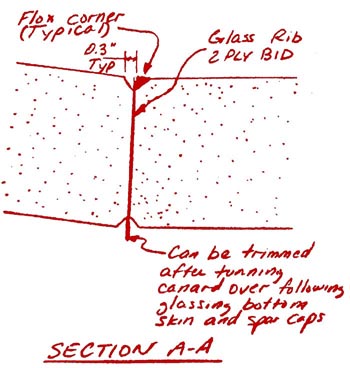 Flox corner
(Typical)
0.3"
TYP
Glass Rib
2 PLY BID
Can be trimmed
after turning
canard over following
glassing bottom
skin and spar caps
SECTION A-A